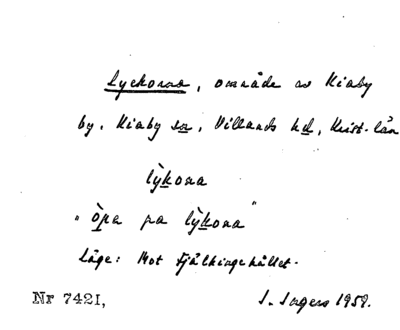 Lyckorna, område av Kiaby
by, Kiaby sn, Villands hd, Krist. län
lỳkona
"òpa pa lỳkona"
Läge: Mot Fjälkingehållet.
Nr 7421, I. Ingers 1959.